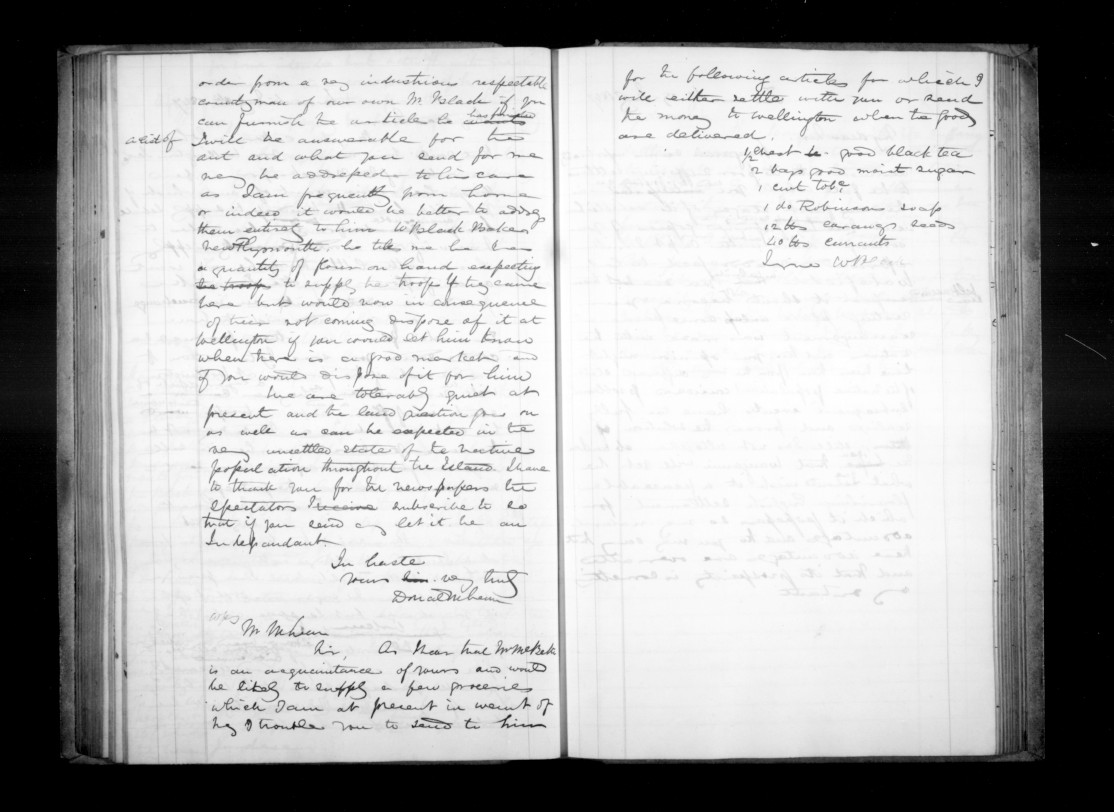 order from a very industrious respectable
countryman of our own Mr Black if you
can furnish the article he wants has furnished
a list of
I will be answerable for the
amt and what you send for me
may be addressed to his care
as I am frequently from home
or indeed it would be better to address
them entirely to him W Black Baker
New Plymouth. he tells me he has
a quantity of flour on hand expecting
the troops to supply the troops if they came
here but would now in consequence
of their not coming dispose of it at
Wellington if you would let him know
when there is a good market and
if you would dispose of it for him
We are tolerably quiet at
present and the land question goes on
as well as can be expected in the
very unsettled state of the native
population throughout the Island I have
to thank you for the newspapers the
Spectators I receive subscribe to so
that if you send any let it be an
Independant.
In haste
yours very truly
Donald McLean
Mr McLean
Sir, As I hear that Mr
is an acquaintance of yours and would
be likely to supply a few groceries
which I am at present in want of
may I trouble you to send to him
for the following articles for which I
will either settle with you or send
the money to Wellington when the goods
are delivered.
1/2 chest good black tea
2 bags good moist sugar
1 cwt Tobo
1 do Robinsons soap
12 lbs caraway seeds
40 lbs currants